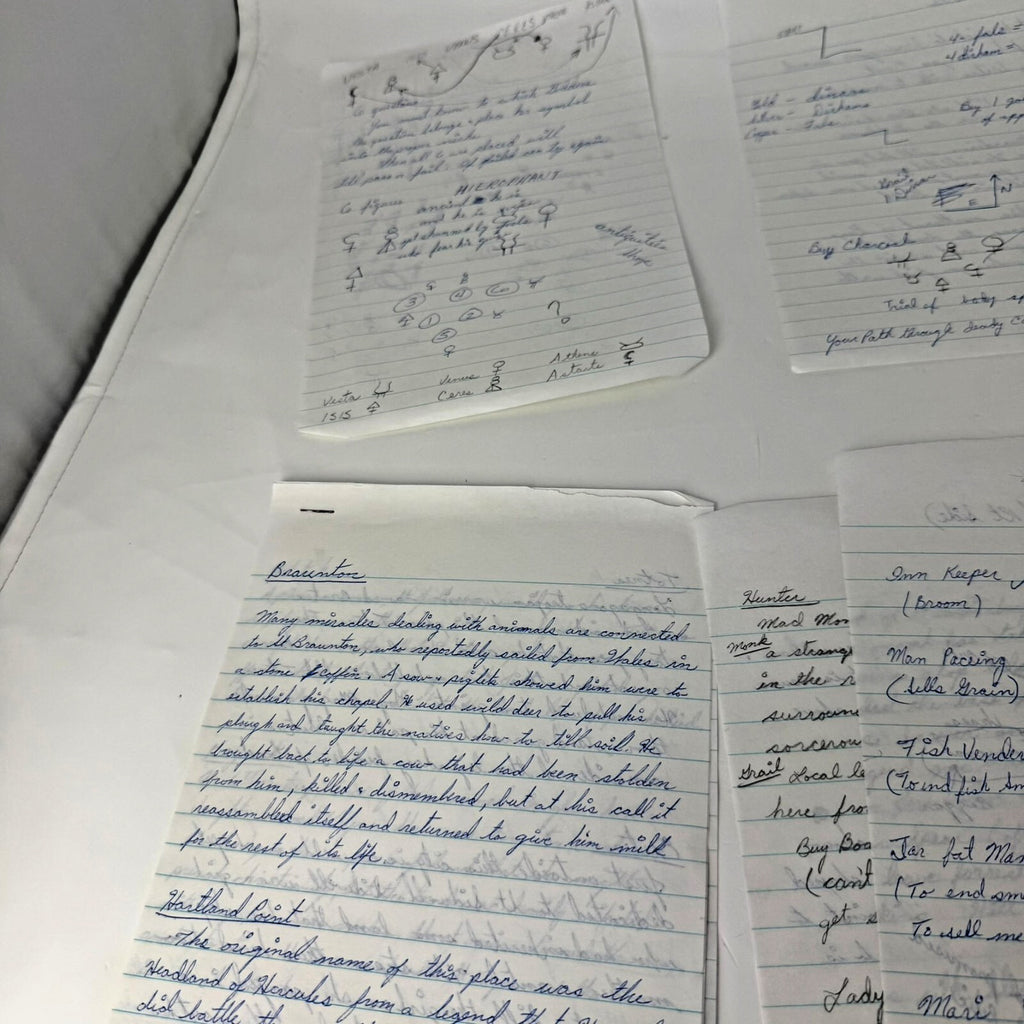 6 questions
You must know to which Goddess
the question belongs & place his symbol
into the proper niche
When all 6 are placed with
HIEROPHANT
6 figures
and he is
get stunned by
?
antiquities
shop
3
4
6
1
2
5
Vesta
Venus
Athene
ISIS
Ceres
Astarte
4 - fals =
4 dirham =
Gold - dinars
Silver - Dirhams
Copper - Fals
Buy 1
of app
N
E
Buy Charcoal
Trial of body
Your Path through deadly
Braunton
Many miracles dealing with animals are connected
to St Braunton, who reportedly sailed from Wales in
a stone coffin. A sow & piglets showed him were to
establish his chapel. He used wild deer to pull his
plough and taught the natives how to till soil. He
brought back to life a cow that had been stolden
from him, killed & dismembered, but at his call it
reassembled itself and returned to give him milk
for the rest of its life.
Hartland Point
The original name of this place was the
Headland of Hercules from a legend that
did battle
Hunter
Mad Mon
Monk a strang
in the
surroun
sorcerou
Grail Local le
here fro
Buy Boo
(can't
get s
Lady
Inn Keeper
(Broom)
Man Paceing
(Sells Grain)
Fish Vender
(To end fish sm
Jar fat Man
(To end sm
To sell me
Mari